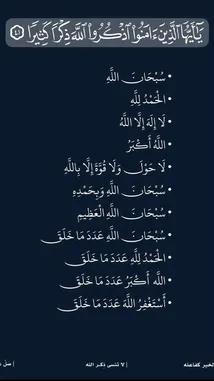 يَٰٓأَيُّهَا ٱلَّذِينَ ءَامَنُوا۟ ٱذْكُرُوا۟ ٱللَّهَ ذِكْرًا كَثِيرًا ٤١
• سُبْحَانَ اللَّهِ
• الْحَمْدُ لِلَّهِ
• لَا إِلَهَ إِلَّا اللَّهُ
• اللَّهُ أَكْبَرُ
• لَا حَوْلَ وَلَا قُوَّةَ إِلَّا بِاللَّهِ
• سُبْحَانَ اللَّهِ وَبِحَمْدِهِ
• سُبْحَانَ اللَّهِ الْعَظِيمِ
• سُبْحَانَ اللَّهِ عَدَدَ مَا خَلَقَ
• الْحَمْدُ لِلَّهِ عَدَدَ مَا خَلَقَ
• اللَّهُ أَكْبَرُ عَدَدَ مَا خَلَقَ
• أَسْتَغْفِرُ اللَّهَ عَدَدَ مَا خَلَقَ
الخير كفاعله | لا تنسى ذكر الله |